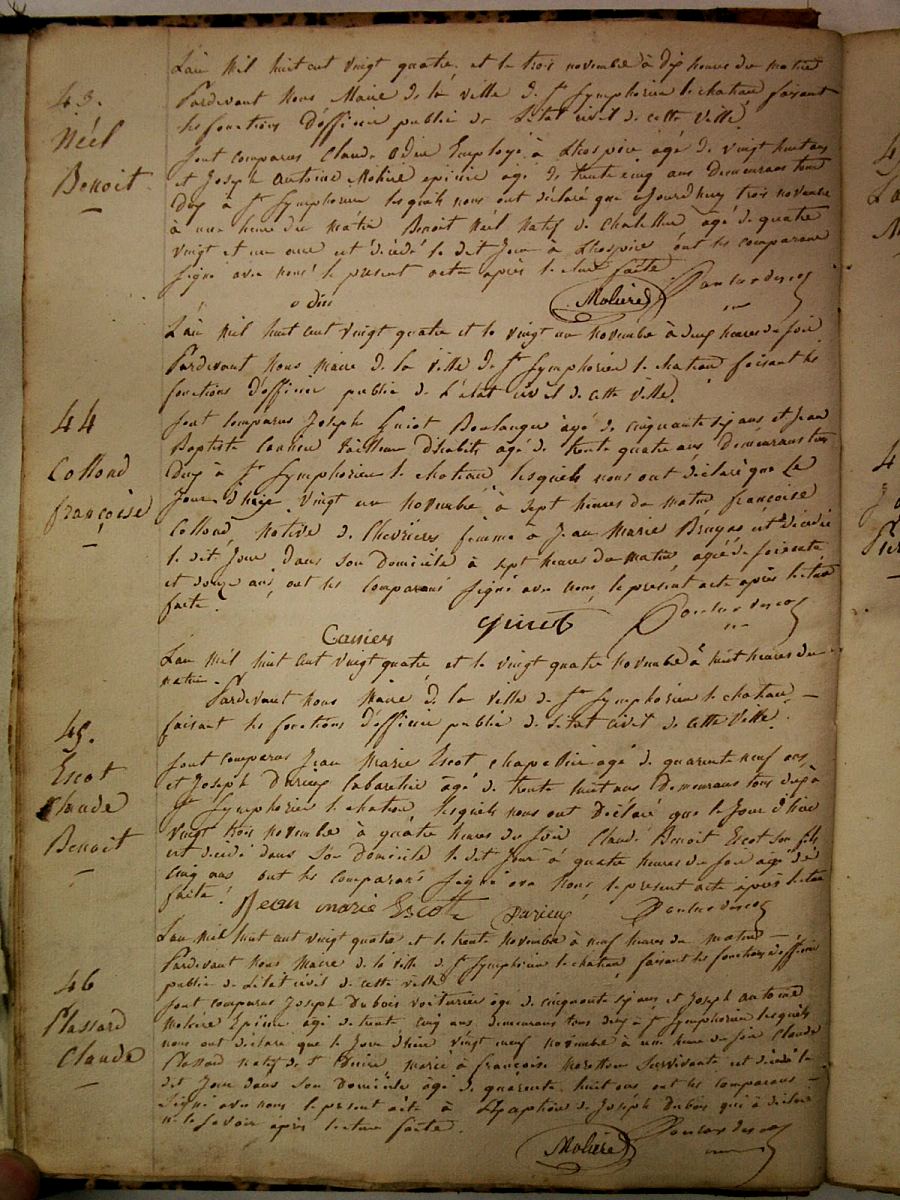 43.
Néel
Benoit
L'an mil huit cent vingt quatre et le trois novembre à dix heures du matin
Pardevant Nous Maire de la ville de St Symphorien le chateau faisant
les fonctions d'officier public de L'état civil de cette ville
sont comparus Claude Odin Employé à Lhospice agé de vingt huit ans
et Joseph Antoine Moliere epicier agé de trente cinq ans demeurans tous
deux à St Symphorien lesquels nous ont déclaré que ajourdhuy trois novembre
à une heure du matin Benoit Néel Natif de agé de quatre
vingt et un ans est décédé le dit Jour à Lhospice ont les comparans
signé avec nous le present acte après lecture faite
odin
Moliere
44
Collond
françoise
L'an mil huit cent vingt quatre et le vingt un novembre à deux heures du soir
Pardevant Nous Maire de la ville de St Symphorien le chateau faisant les
fonctions d'officier public de L'état civil de cette ville.
sont comparus Joseph Guiot Boulanger agé de cinquante six ans et Jean
Baptiste tailleur d'habits agé de trente quatre ans demeurans tous
deux à St Symphorien le chateau lesquels nous ont déclaré que Le
Jour d'hier vingt un novembre à sept heures du matin françoise
Collond Native de Chevrieres femme à Jean Marie Bruyas est décédée
le dit Jour dans son Domicile à sept heures du matin agée de soixante
et douze ans, ont les comparans signé avec nous le present acte après lecture
faite.
guiot
45.
Escot
Claude
Benoit
L'an mil huit cent vingt quatre et le vingt quatre novembre à huit heures du
matin.
Pardevant Nous Maire de la ville de St Symphorien le chateau
faisant les fonctions d'officier public de L'etat civil de cette ville.
sont comparus Jean Marie Escot chapellier agé de quarante neuf ans
et Joseph Durieux Cabaretier agé de trente huit ans Demeurans tous deux à
St Symphorien le chateau lesquels nous ont Déclaré que le Jour d'hier
vingt trois novembre à quatre heures du soir Claude Benoit Escot son fils
est décédé dans son Domicile le dit Jour à quatre heures du soir agé de
cinq ans ont les comparans signé avec Nous le present acte après lecture
faite.
Jean marie Escot
Durieux
46
Plassard
Claude
L'an mil huit cent vingt quatre et le trente Novembre à neuf heures du matin
Pardevant Nous Maire de la ville de St Symphorien le chateau faisant les fonctions d'officier
public de L'état civil de cette ville
sont comparus Joseph Dubois voiturier agé de cinquante six ans et Joseph Antoine
Moliere Epicier agé de trente cinq ans demeurans tous deux à St Symphorien lesquels
nous ont déclaré que le Jour d'hier vingt neuf novembre à une heure du soir Claude
Plassard natif de St marié à françoise survivante est décédé le
dit Jour dans son Domicile agé de quarante huit ans ont les comparans
signé avec nous le present acte à L'exception de Joseph Dubois qui a déclaré
ne le savoir après lecture faite.
Moliere